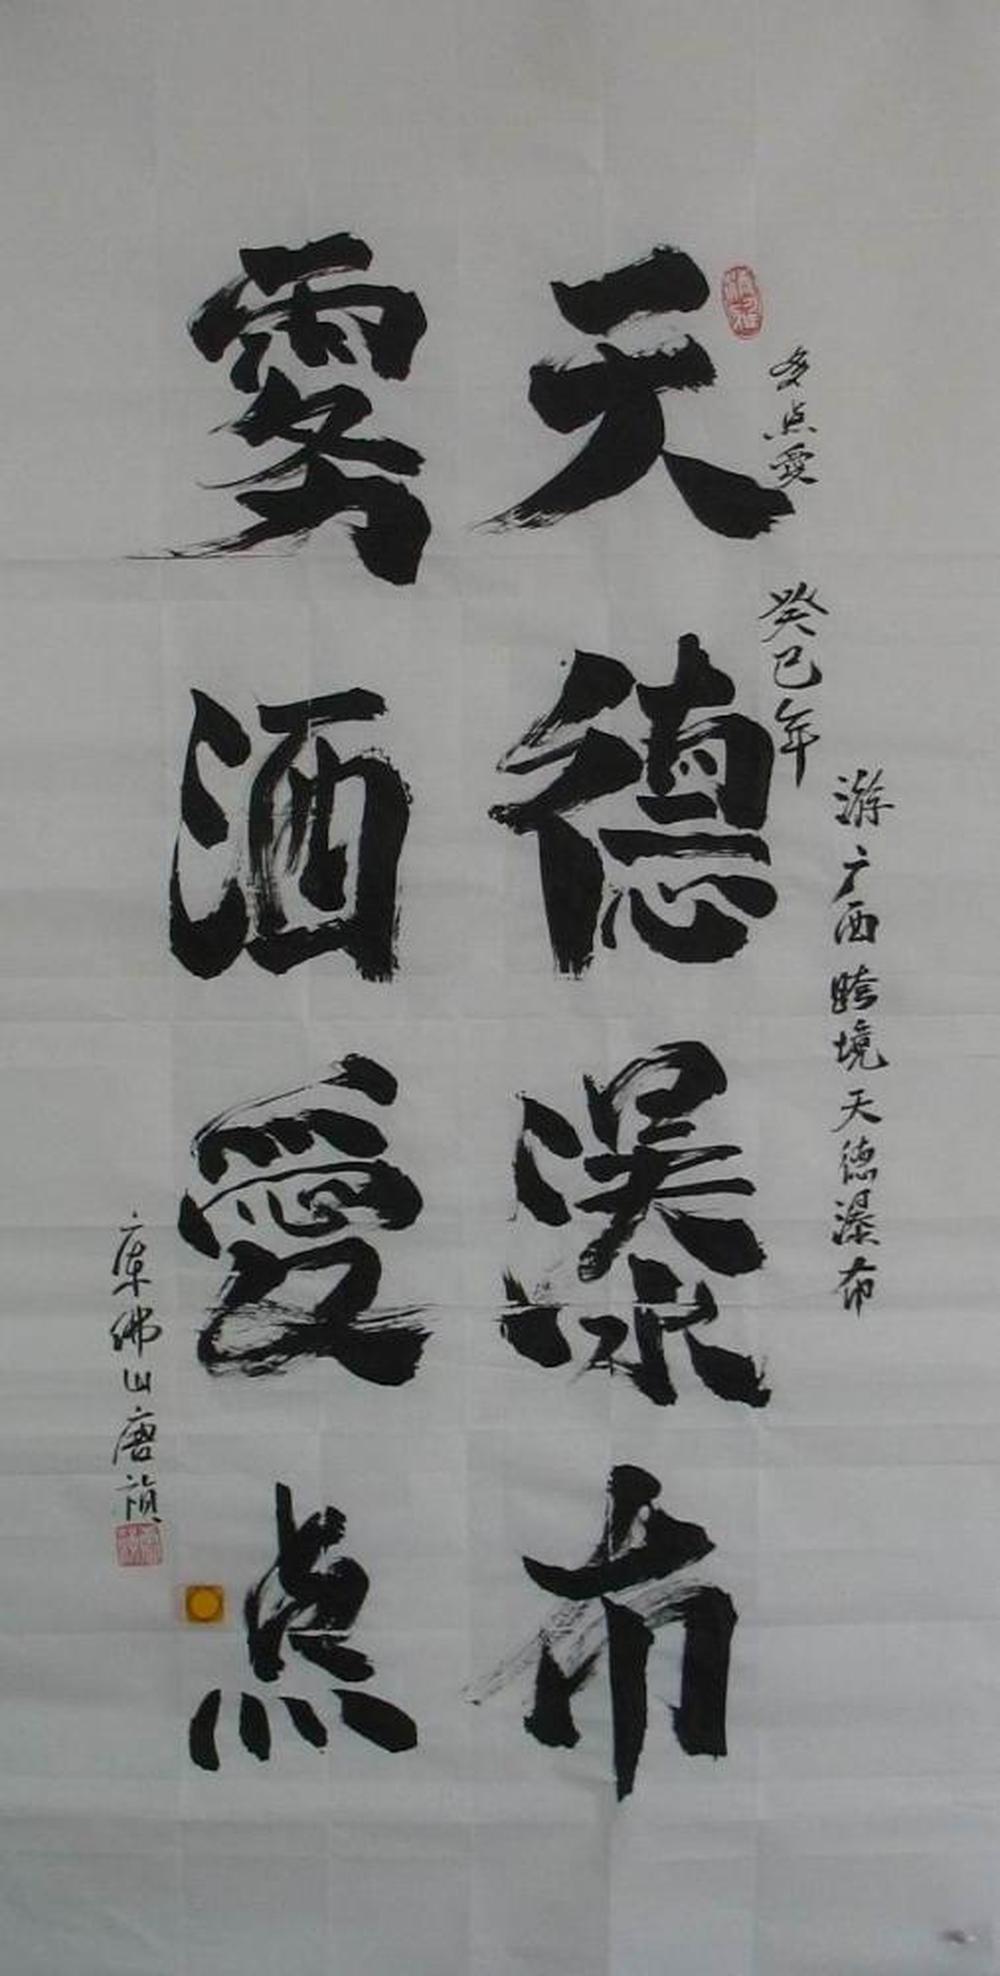 游广西跨境天德瀑布
多点愛
癸巳年
天德瀑布
雾洒愛点
广东佛山唐祯